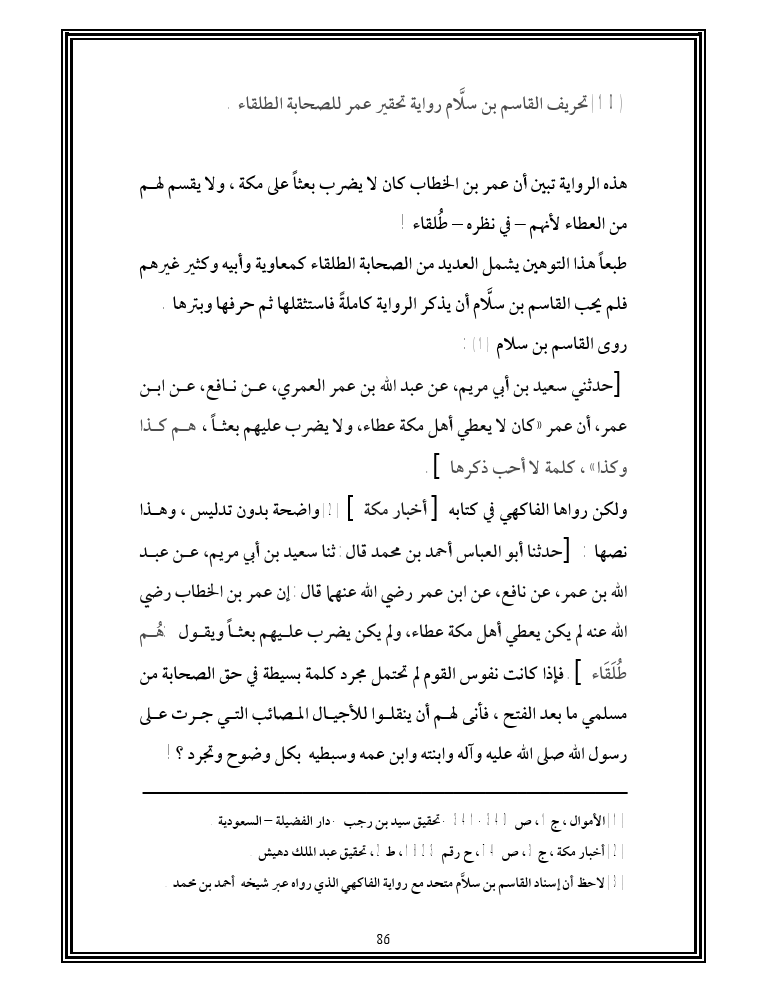 تحريف القاسم بن سلَّام رواية تحقير عمر للصحابة الطلقاء .
هذه الرواية تبين أن عمر بن الخطاب كان لا يضرب بعثاً على مكة ، ولا يقسم لهـم
من العطاء لأنهم – في نظره – طُلقاء !
طبعاً هذا التوهين يشمل العديد من الصحابة الطلقاء كمعاوية وأبيه وكثير غيرهم
فلم يحب القاسم بن سلَّام أن يذكر الرواية كاملةً فاستثقلها ثم حرفها وبترها .
روى القاسم بن سلام (١) :
[حدثني سعيد بن أبي مريم، عن عبد الله بن عمر العمري، عـن نـافع، عـن ابـن
عمر، أن عمر «كان لا يعطي أهل مكة عطاء، ولا يضرب عليهم بعثـاً ، هـم كـذا
وكذا» ، كلمة لا أحب ذكرها ] .
ولكن رواها الفاكهي في كتابه [ أخبار مكة ] واضحة بدون تدليس ، وهـذا
نصها : [حدثنا أبو العباس أحمد بن محمد قال : ثنا سعيد بن أبي مريم، عـن عبـد
الله بن عمر، عن نافع، عن ابن عمر رضي الله عنهما قال : إن عمر بن الخطاب رضي
الله عنه لم يكن يعطي أهل مكة عطاء، ولم يكن يضرب علـيهم بعثـاً ويقـول : هُـم
طُلَقَاء ] . فإذا كانت نفوس القوم لم تحتمل مجرد كلمة بسيطة في حق الصحابة من
مسلمي ما بعد الفتح ، فأنى لهـم أن ينقلـوا للأجيـال المـصائب التـي جـرت عـلى
رسول الله صلى الله عليه وآله وابنته وابن عمه وسبطيه بكل وضوح وتجرد ؟ !
الأموال ، ج ، ص . تحقيق سيد بن رجب . دار الفضيلة – السعودية .
أخبار مكة ، ج ، ص ، ح رقم ، ط ، تحقيق عبد الملك دهيش .
لاحظ أن إسناد القاسم بن سلاَّم متحد مع رواية الفاكهي الذي رواه عبر شيخه أحمد بن محمد .
86